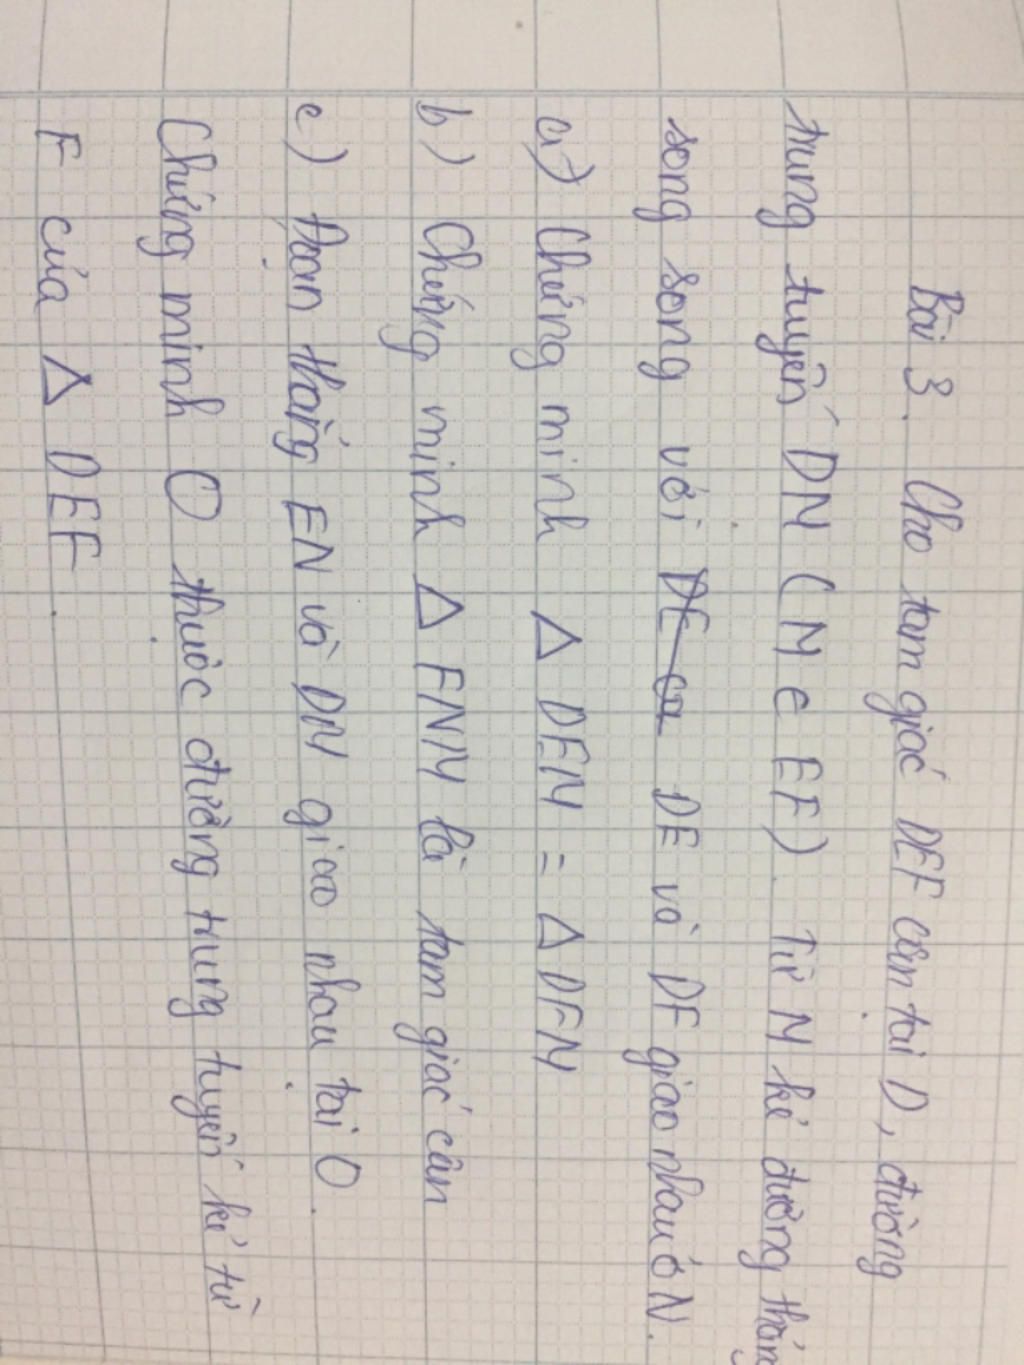 Bài 3. Cho tam giác DEF cân tại D, đường
trung tuyến DM (M e EF). Từ M kẻ đường thẳn
song song với DE và DF giao nhau ở N.
a) Chứng minh Δ DEM = Δ DFM
b) Chứng minh Δ FNM là tam giác cân
c) Đoạn thẳng EN và DM giao nhau tại O.
Chứng minh O thuộc đường trung tuyến kẻ từ
F của Δ DEF.